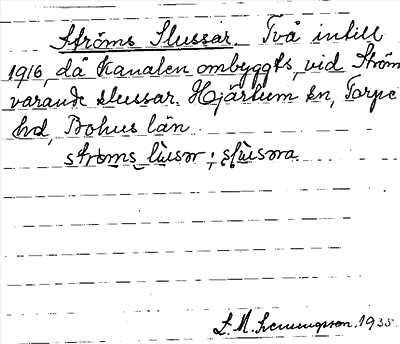 Ströms Slussar. Två intill
1916, då Kanalen ombyggts, vid Ström
varande slussar. Hjärtum sn, Torpe
hd, Bohus län
ströms lusor : slusora
L. M. 1935.